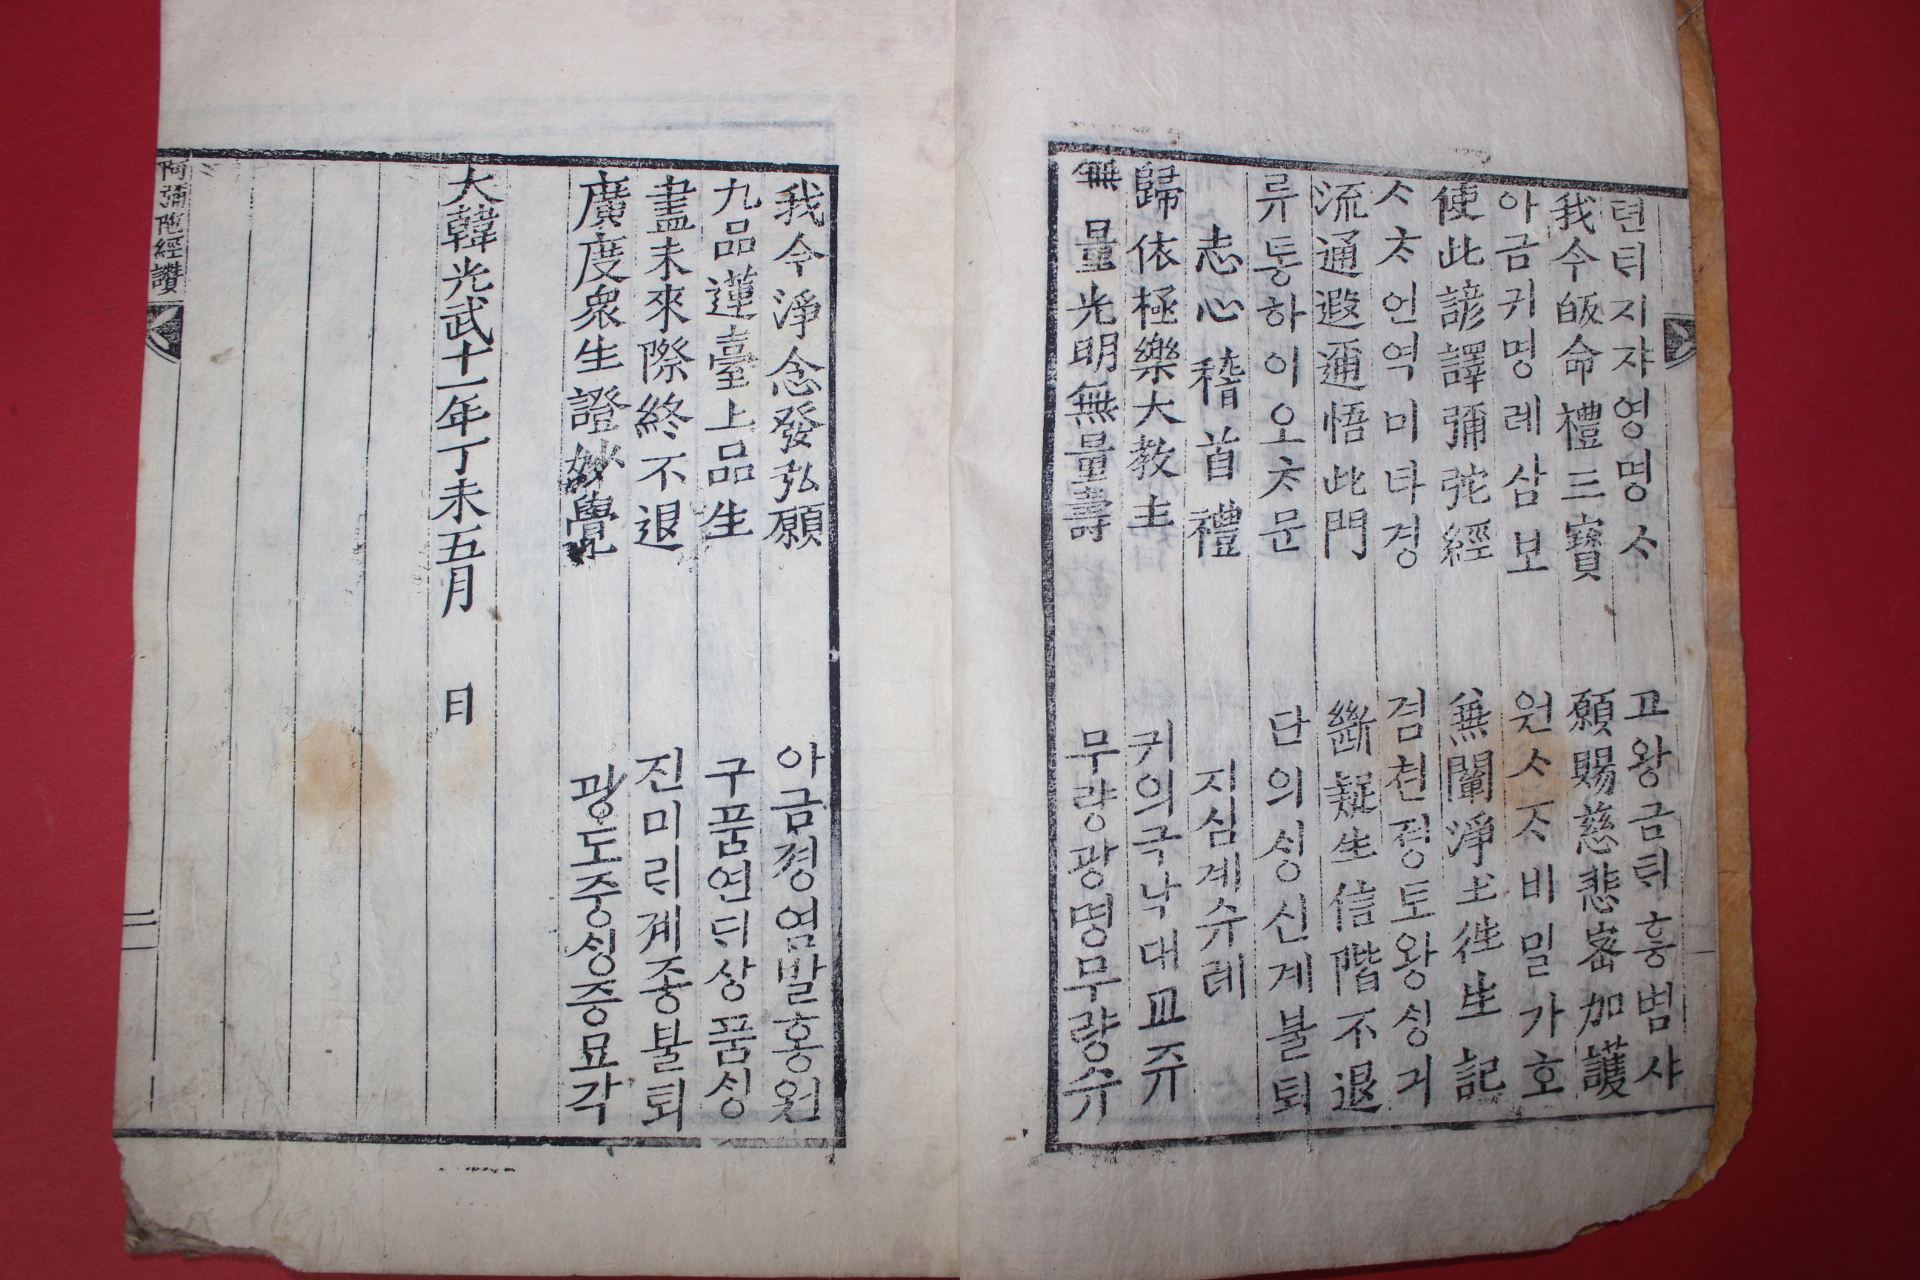 텬티지쟈영명ᄉ 고왕금ᄅᆡ흥범샤
我今皈命禮三寶 願賜慈悲密加護
아금귀명례삼보 원ᄉᄌ비밀가호
使此諺譯彌陀經 兼闡淨土往生記
ᄉᄎ언역미타경 겸쳔졍토왕ᄉᆡᆼ긔
流通遐邇悟此門 斷疑生信階不退
류통하이오ᄎ문 단의ᄉᆡᆼ신계불퇴
志心稽首禮 지심계슈례
歸依極樂大教主 귀의극낙대교쥬
無量光明無量壽 무량광명무량슈
我今淨念發弘願 아금졍염발홍원
九品蓮臺上品生 구품연ᄃᆡ상품ᄉᆡᆼ
盡未來際終不退 진미ᄅᆡ계종불퇴
廣度衆生證妙覺 광도즁ᄉᆡᆼ증묘각
大韓光武十一年丁未五月 日
阿彌陀經讚
二